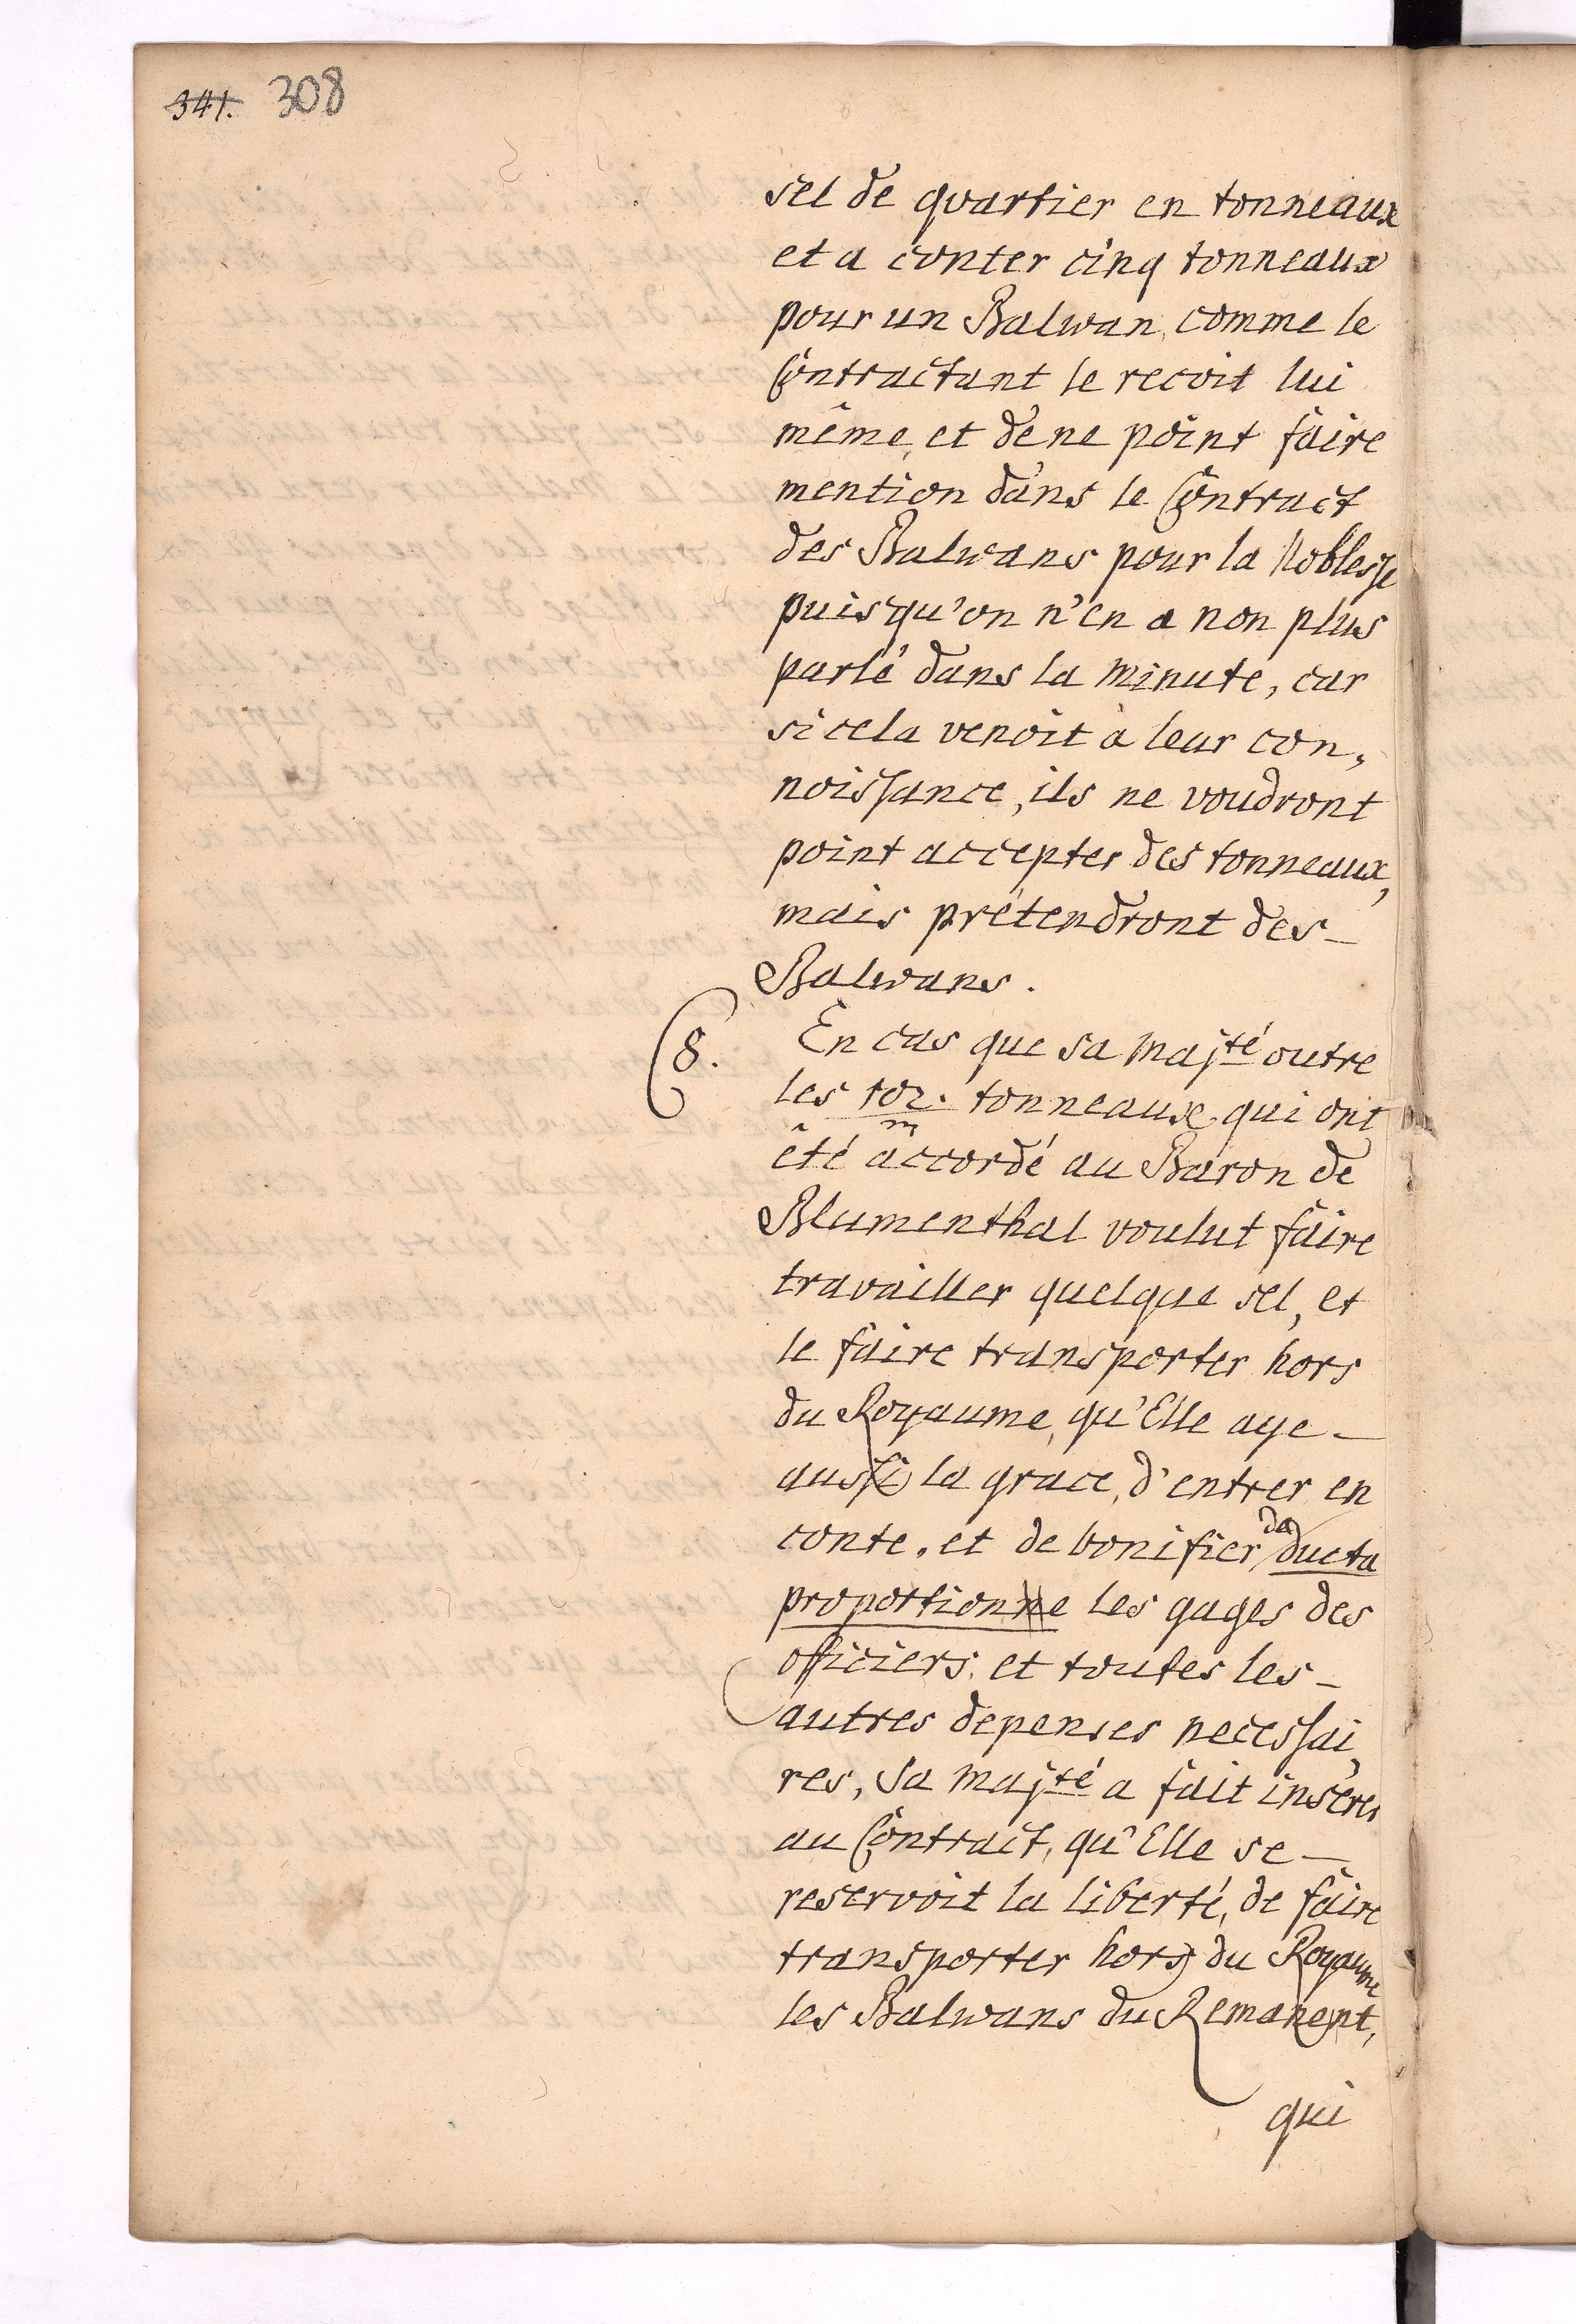 341. 308
sel de quartier en tonneaux
et a conter cinq tonneaux
pour un Balwan, comme le
Contractant le recoit lui
même, et de ne point faire
mention dans le Contract
des Balwans pour la Noblesse
puisqu'on n'en a non plus
parlé dans la minute, car
si cela venoit à leur con,
noissance, ils ne voudront
point accepter des tonneaux,
mais prétendront des
Balwans.
8. En cas que sa majté outre
les 102. tonneaux qui ont
m
été accordé au Baron de
Blumenthal voulut faire
travailler quelque sel, et
le faire transporter hors
du Royaume, qu'Elle aye
aussi la grace, d'entrer en
conte, et de bonifier de ducta
proportionne les gages des
officiers, et toutes les
autres depenses necessai,
res, Sa majté a fait inserer
au Contract, qu'Elle se
reservoit la liberté, de faire
transporter hors du Royaume
les Balwans du Remanent,
qui